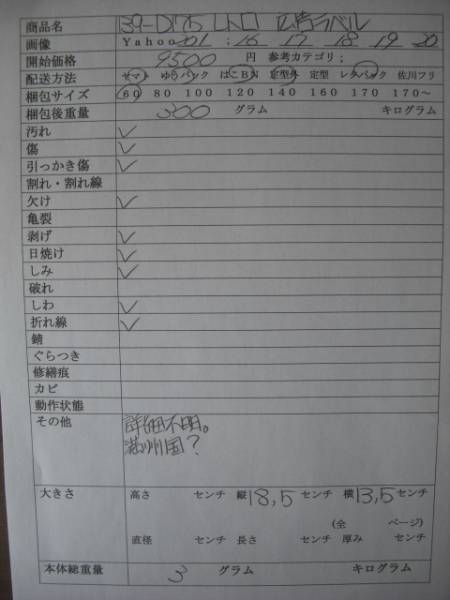 商品名 139-D175 レトロ 広告ラベル
画像 Yahoo 201 : 16 17 18 19 20
開始価格 9500 円 参考カテゴリ;
配送方法 ヤマト ゆうパック はこBN 定型外 定型 レタパック 佐川フリ
梱包サイズ 60 80 100 120 140 160 170 170〜
梱包後重量 300 グラム キログラム
汚れ ✓
傷 ✓
引っかき傷 ✓
割れ・割れ線
欠け ✓
亀裂
剥げ ✓
日焼け ✓
しみ ✓
破れ
しわ ✓
折れ線 ✓
錆
ぐらつき
修繕痕
カビ
動作状態
その他 詳細不明。
満州国?
大きさ 高さ センチ 縦18,5 センチ 横13,5センチ
(全 ページ)
直径 センチ 長さ センチ 厚み センチ
本体総重量 3 グラム キログラム